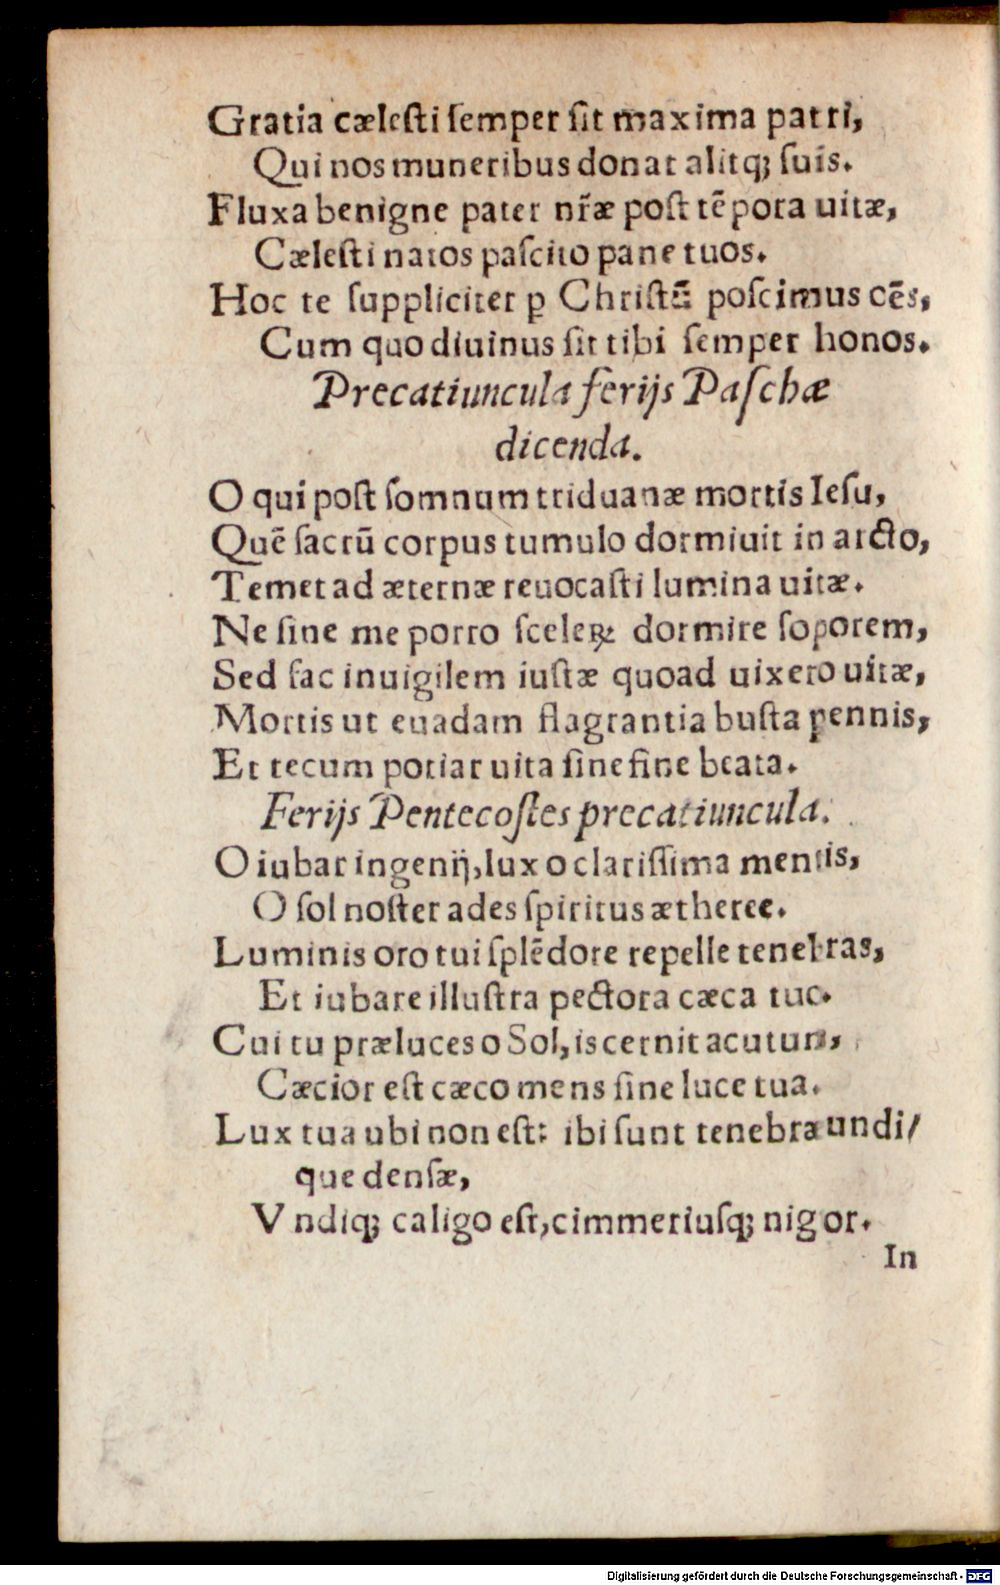 Gratia cælesti semper sit maxima patri,
Qui nos muneribus donat alitq; suis.
Fluxa benigne pater nr̃æ post tẽpora uitæ,
Cælesti natos pascito pane tuos.
Hoc te suppliciter ꝑ Christũ poscimus oẽs,
Cum quo diuinus sit tibi semper honos.
Precatiuncula ferijs Paschæ
dicenda.
O qui post somnum triduanæ mortis Iesu,
Quẽ sacrũ corpus tumulo dormiuit in arcto,
Temet ad æternæ reuocasti lumina uitæ.
Ne sine me porro sceleꝝ dormire soporem,
Sed fac inuigilem iustæ quoad uixero uitæ,
Mortis ut euadam flagrantia busta pennis,
Et tecum potiar uita sine fine beata.
Ferijs Pentecostes precatiuncula.
O iubar ingenij, lux o clarissima mentis,
O sol noster ades spiritus ætheree.
Luminis oro tui splẽdore repelle tenebras,
Et iubare illustra pectora cæca tuo.
Cui tu præluces o Sol, is cernit acutum,
Cæcior est cæco mens sine luce tua.
Lux tua ubi non est: ibi sunt tenebræ undi/
que densæ,
Vndiq; caligo est, cimmeriusq; nigor.
In
Digitalisierung gefördert durch die Deutsche Forschungsgemeinschaft - DFG